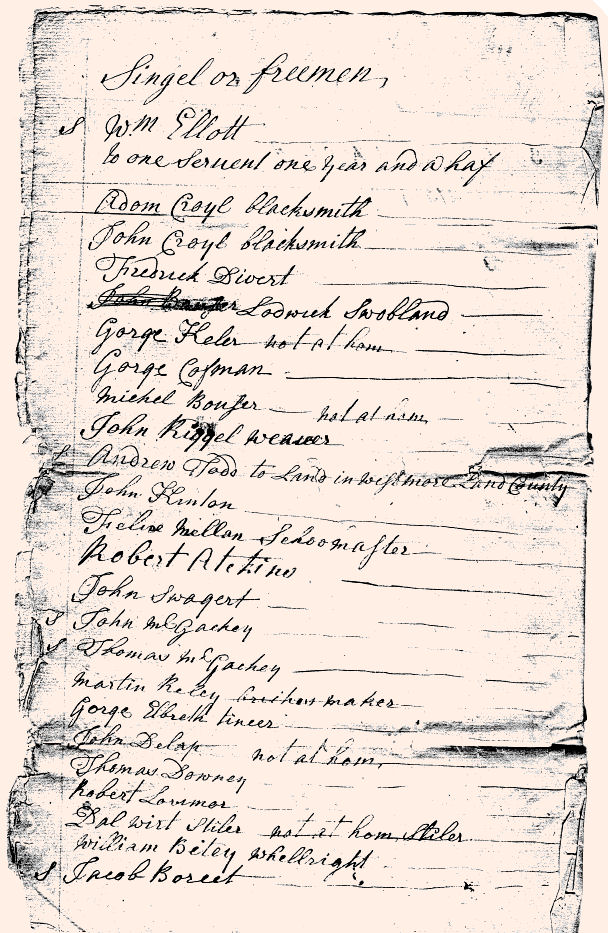 Singel or freemen,
S Wm Ellott
to one Servent one year and a haf
Adom Croyl blacksmith
John Croyl blacksmith
Fredrick Divert
Lodwick Swobland
Gorge Keler not at hom
Gorge Cofman
Michel Bouser not at hom
John Riggel weaver
S Andrew Todd to Land in westmore Land County
John Hinton
Felix Mellan Scoomaster
Robert Atchins
John Swagert
S John McGachey
S Thomas McGachey
Martin Reley briches maker
Gorge Elbreth tineer
John Delap not at hom,
Thomas Downey
Robert Lorimor
Dal wirt Stiler not at hom Stiler
William Bitey whellright
S Jacob Boreet